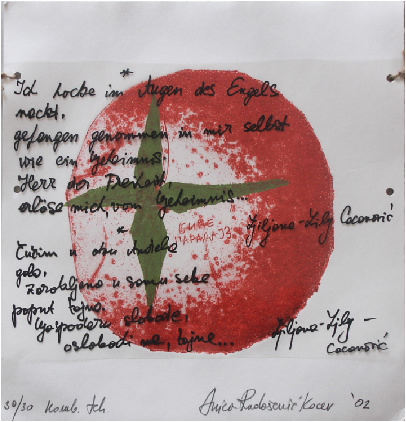 *
Ich hocke im Augen des Engels
nackt,
gefangen genommen in mir selbst
wie ein Geheimnis
Herr der Freiheit,
erlöse mich von Geheimnis...
Ljiljana-Lily Cocanović
*
Čučim u oku anđela
golo,
zarobljeno u samu sebe
poput tajne,
Gospodaru slobode,
oslobodi me, tajne...
Ljiljana-Lily -
Cocanović
30/30 komb. teh Anica Radošević Kocev '02